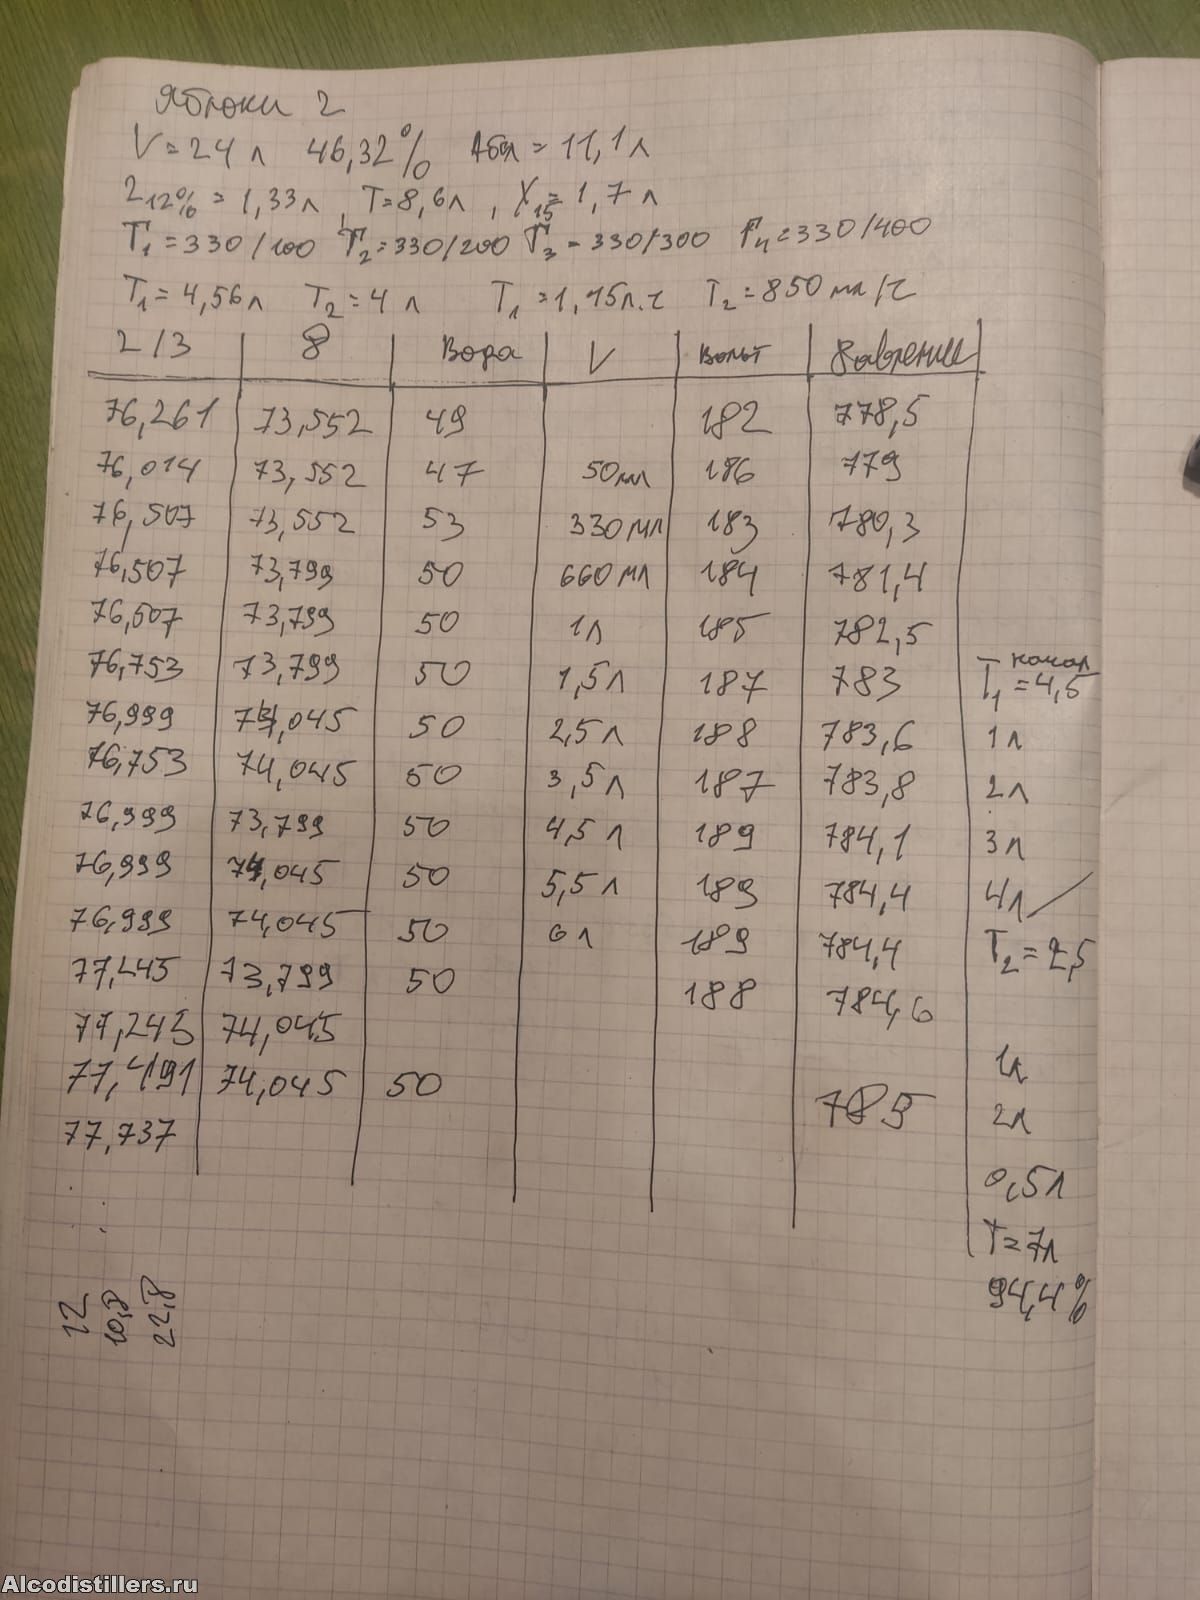 Яблоки 2
V=24 л 46,32% Абсл = 11,1 л
2 12% = 1,33 л , T=8,6 л , X15 = 1,7 л
Г1 = 330/100 Г2 = 330/200 Г3 - 330/300 Г4 = 330/400
T1 = 4,56 л T2 = 4 л T1 = 1,15 л.ч T2 = 850 мл/ч
2/3 8 Вода V Вольт Давление
76,261 73,552 49 182 778,5
76,014 73,552 47 50 мл 186 779
76,507 73,552 53 330 мл 183 780,3
76,507 73,799 50 660 мл 184 781,4
76,507 73,799 50 1 л 185 782,5
76,753 73,799 50 1,5 л 187 783 T1 = 4,5
76,999 74,045 50 2,5 л 188 783,6 1 л
76,753 74,045 50 3,5 л 187 783,8 2 л
76,999 73,799 50 4,5 л 189 784,1 3 л
76,999 74,045 50 5,5 л 189 784,4 4 л
76,999 74,045 50 6 л 189 784,4 T2 = 2,5
77,245 73,799 50 188 784,6
77,245 74,045 1 л
77,491 74,045 50 785 2 л
77,737
0,5 л
T = 7 л
94,4%
12
10,8
22,8
Alcodistillers.ru